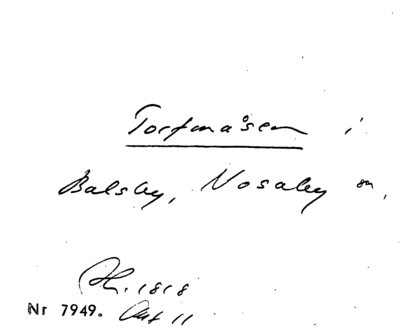 Torfmåsen i
Balsby, Nosaby sn,
1818
Nr 7949. Akt 11